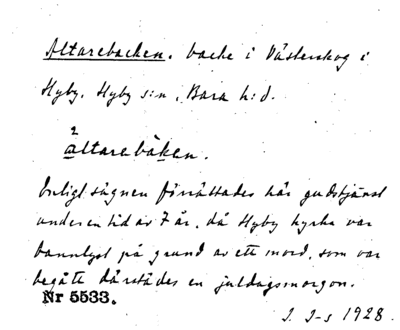 Altarebacken. backe i Västerskog i
Hyby. Hyby s:n, Bara h:d.
altarebåken.
Enligt sägnen förrättades här gudstjänst
under en tid av 7 år, då Hyby kyrka var
bannlyst på grund av ett mord, som var
begått därstädes en juldagsmorgon.
Nr 5533.
J. I-s 1928.